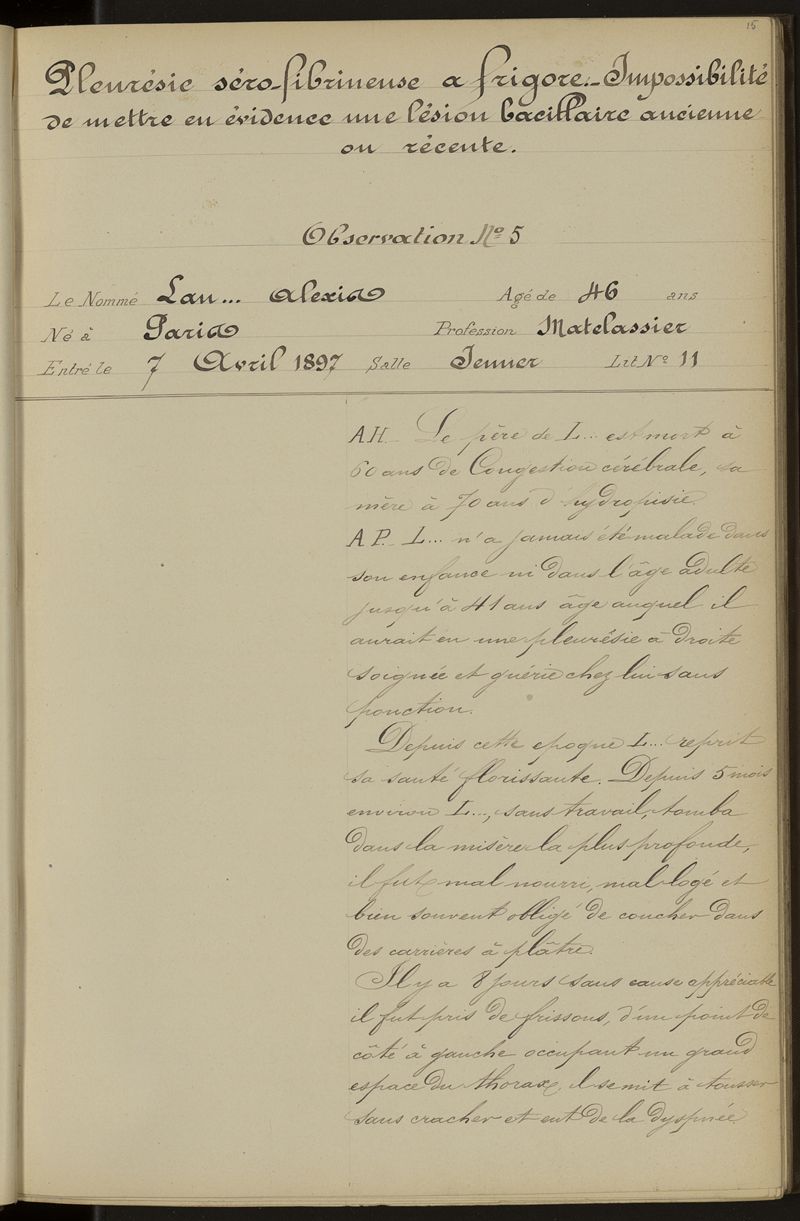 15
Pleurésie séro-fibrineuse a frigore._Impossibilité
de mettre en évidence une lésion bacillaire ancienne
ou récente.
Observation No 5
Le Nommé Lau... Alexis Agé de 46 ans
Né à Paris Profession Matelassier
Entré le 7 Avril 1897 Salle Jenner Lit No 11
A.H._ Le père de L... est mort à
60 ans de Congestion cérébrale, sa
mère à 70 ans d'hydropisie.
A P._ L... n'a jamais été malade dans
son enfance ni dans l'âge adulte
jusqu'à 41 ans âge auquel il
aurait eu une pleurésie à droite
soignée et guérie chez lui sans
ponction.
Depuis cette epoque L... reprit
sa santé florissante. Depuis 5 mois
environ L..., sans travail, tomba
dans la misère la plus profonde,
il fut mal nourri, mal logé et
bien souvent obligé de coucher dans
des carrières à plâtre.
Il y a 8 jours sans cause appréciable
il fut pris de frissons, d'un point de
côté à gauche occupant un grand
espace du thorax, il se mit à tousser
sans cracher et eut de la dyspnée